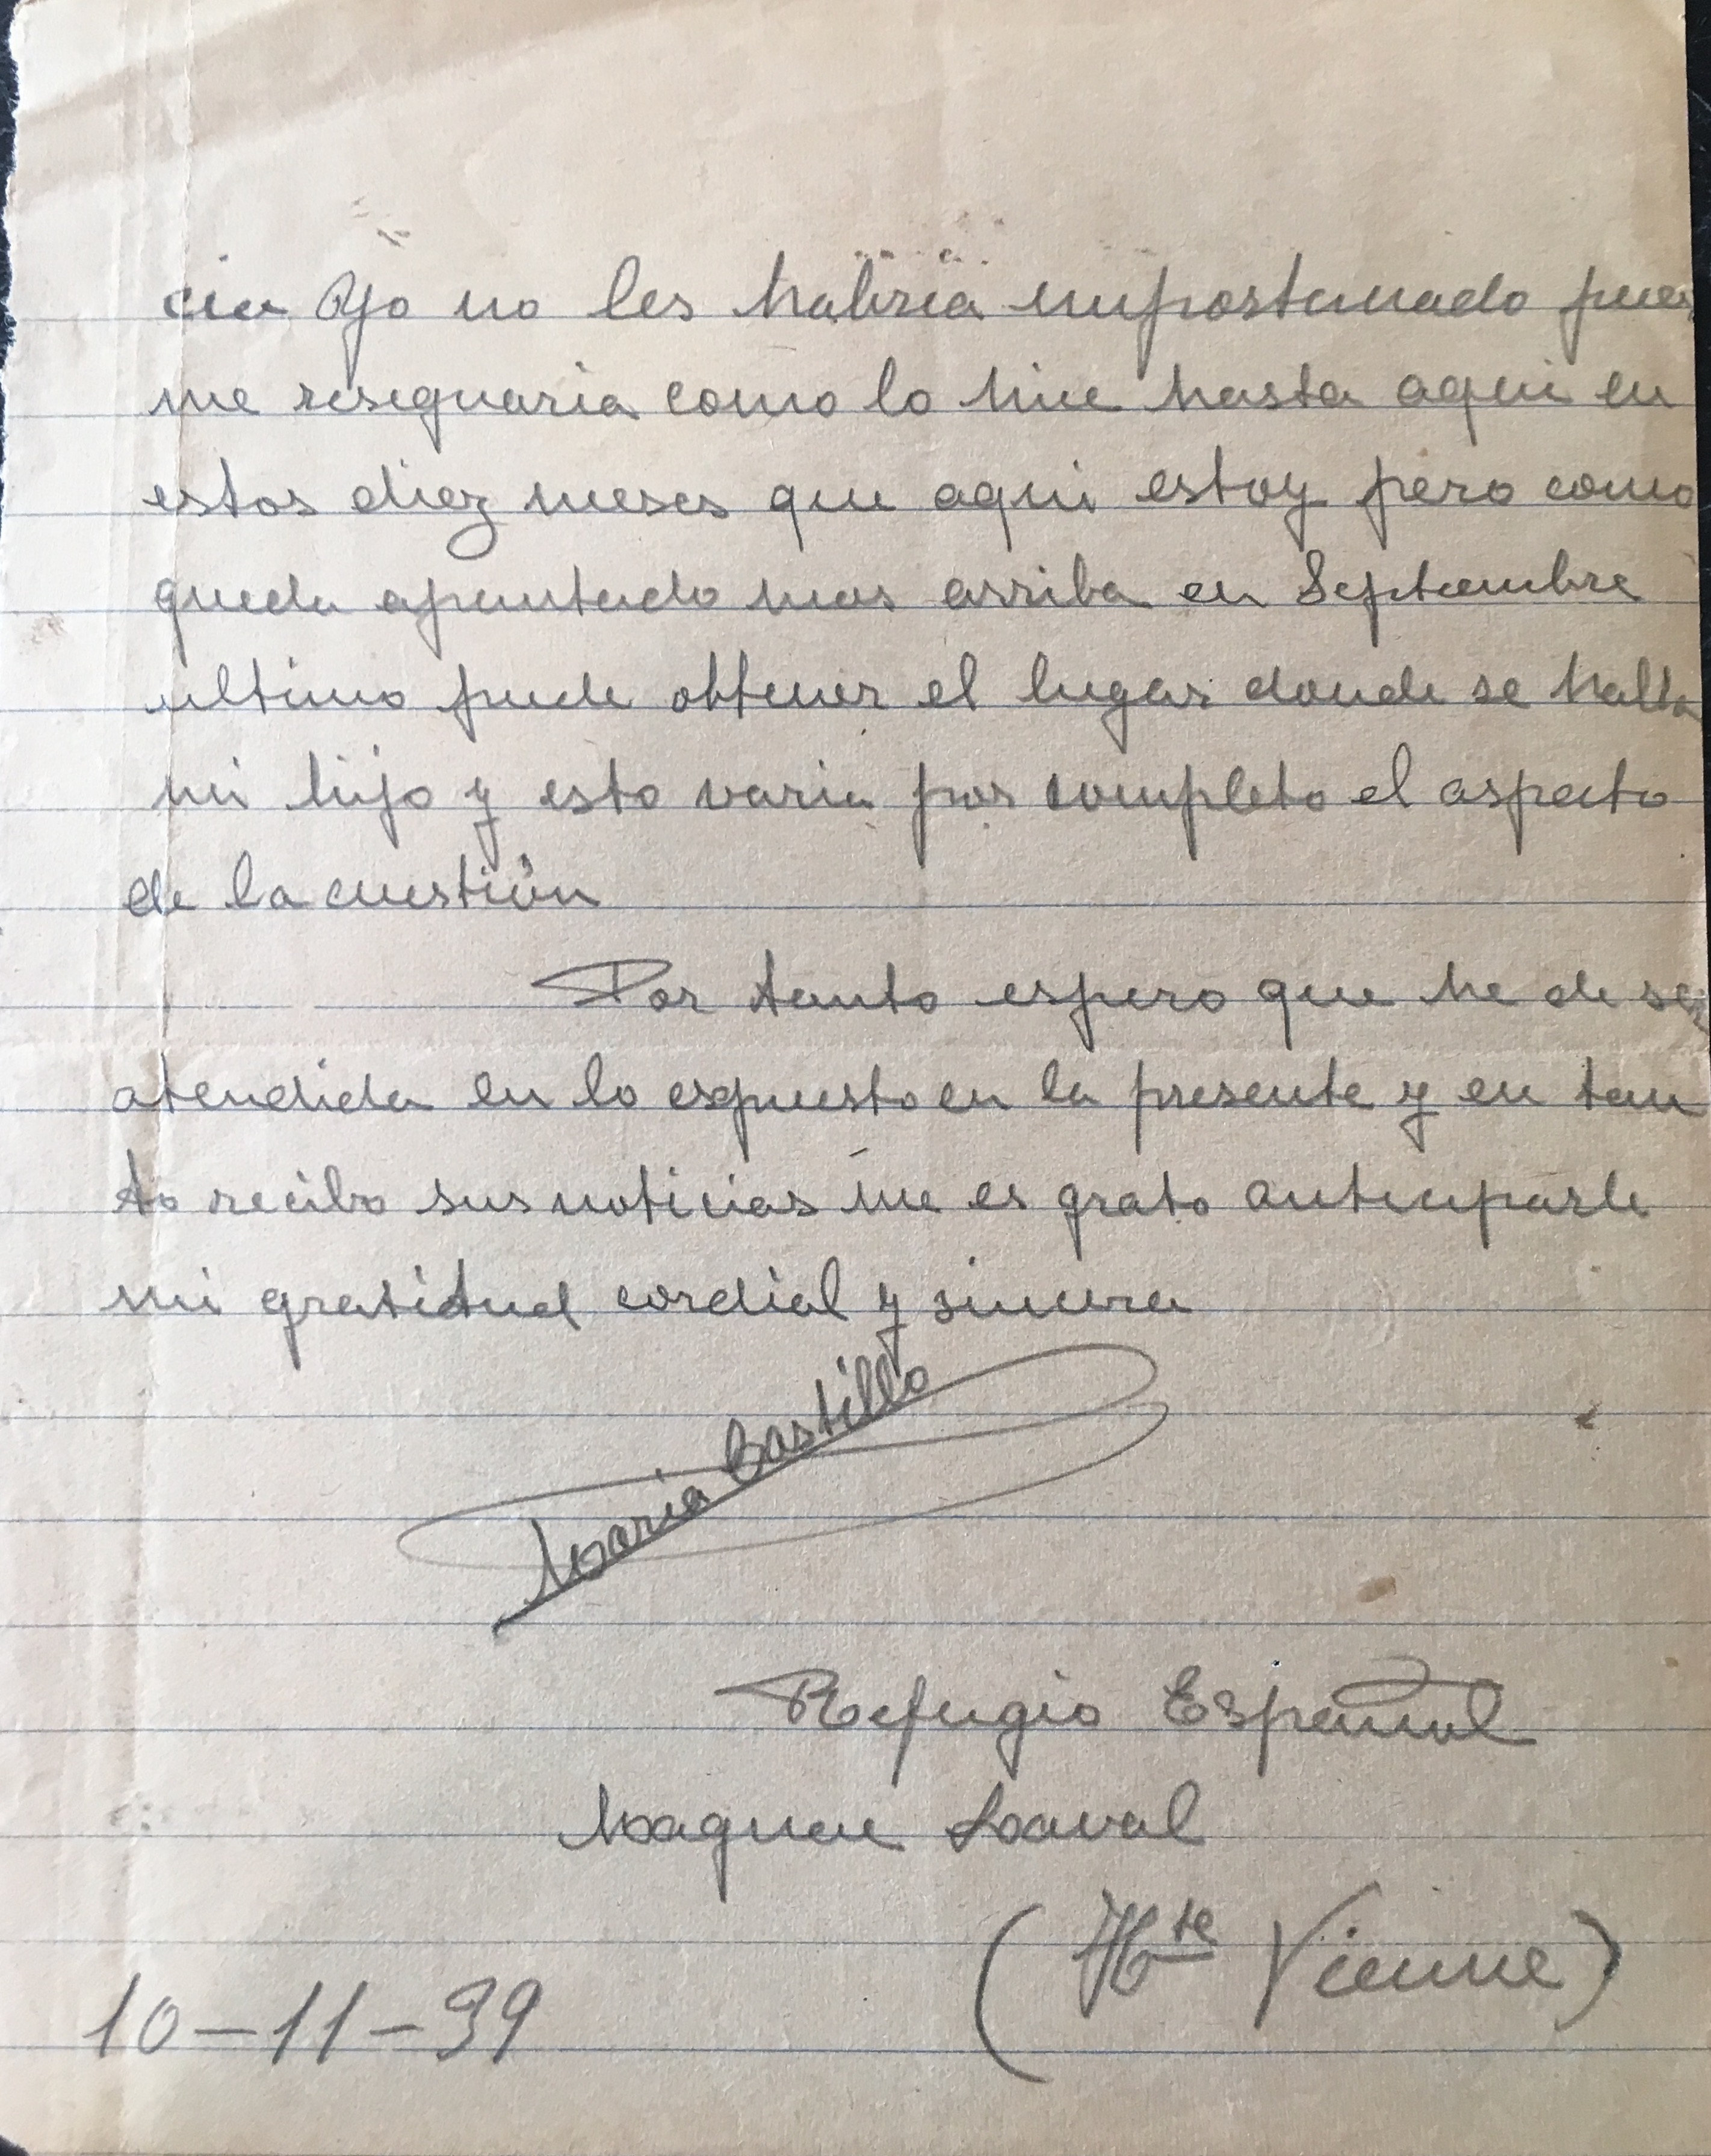 cia Yo no les habria importunado pues
me resignaria como lo hice hasta aqui en
estos diez meses que aqui estoy pero como
queda apuntado mas arriba en Septembre
ultimo pude obtener el lugar donde se halla
mi hijo y esto varia por completo el aspecto
de la cuestión
Por tanto espero que he de ser
atendida en lo espuesto en la presente y en tan
to recibo sus noticias me es grato anticiparle
mi gratitud cordial y sincera
Maria Castillo
Refugio Español
Magnac Laval
(Hte Vienne)
10-11-39